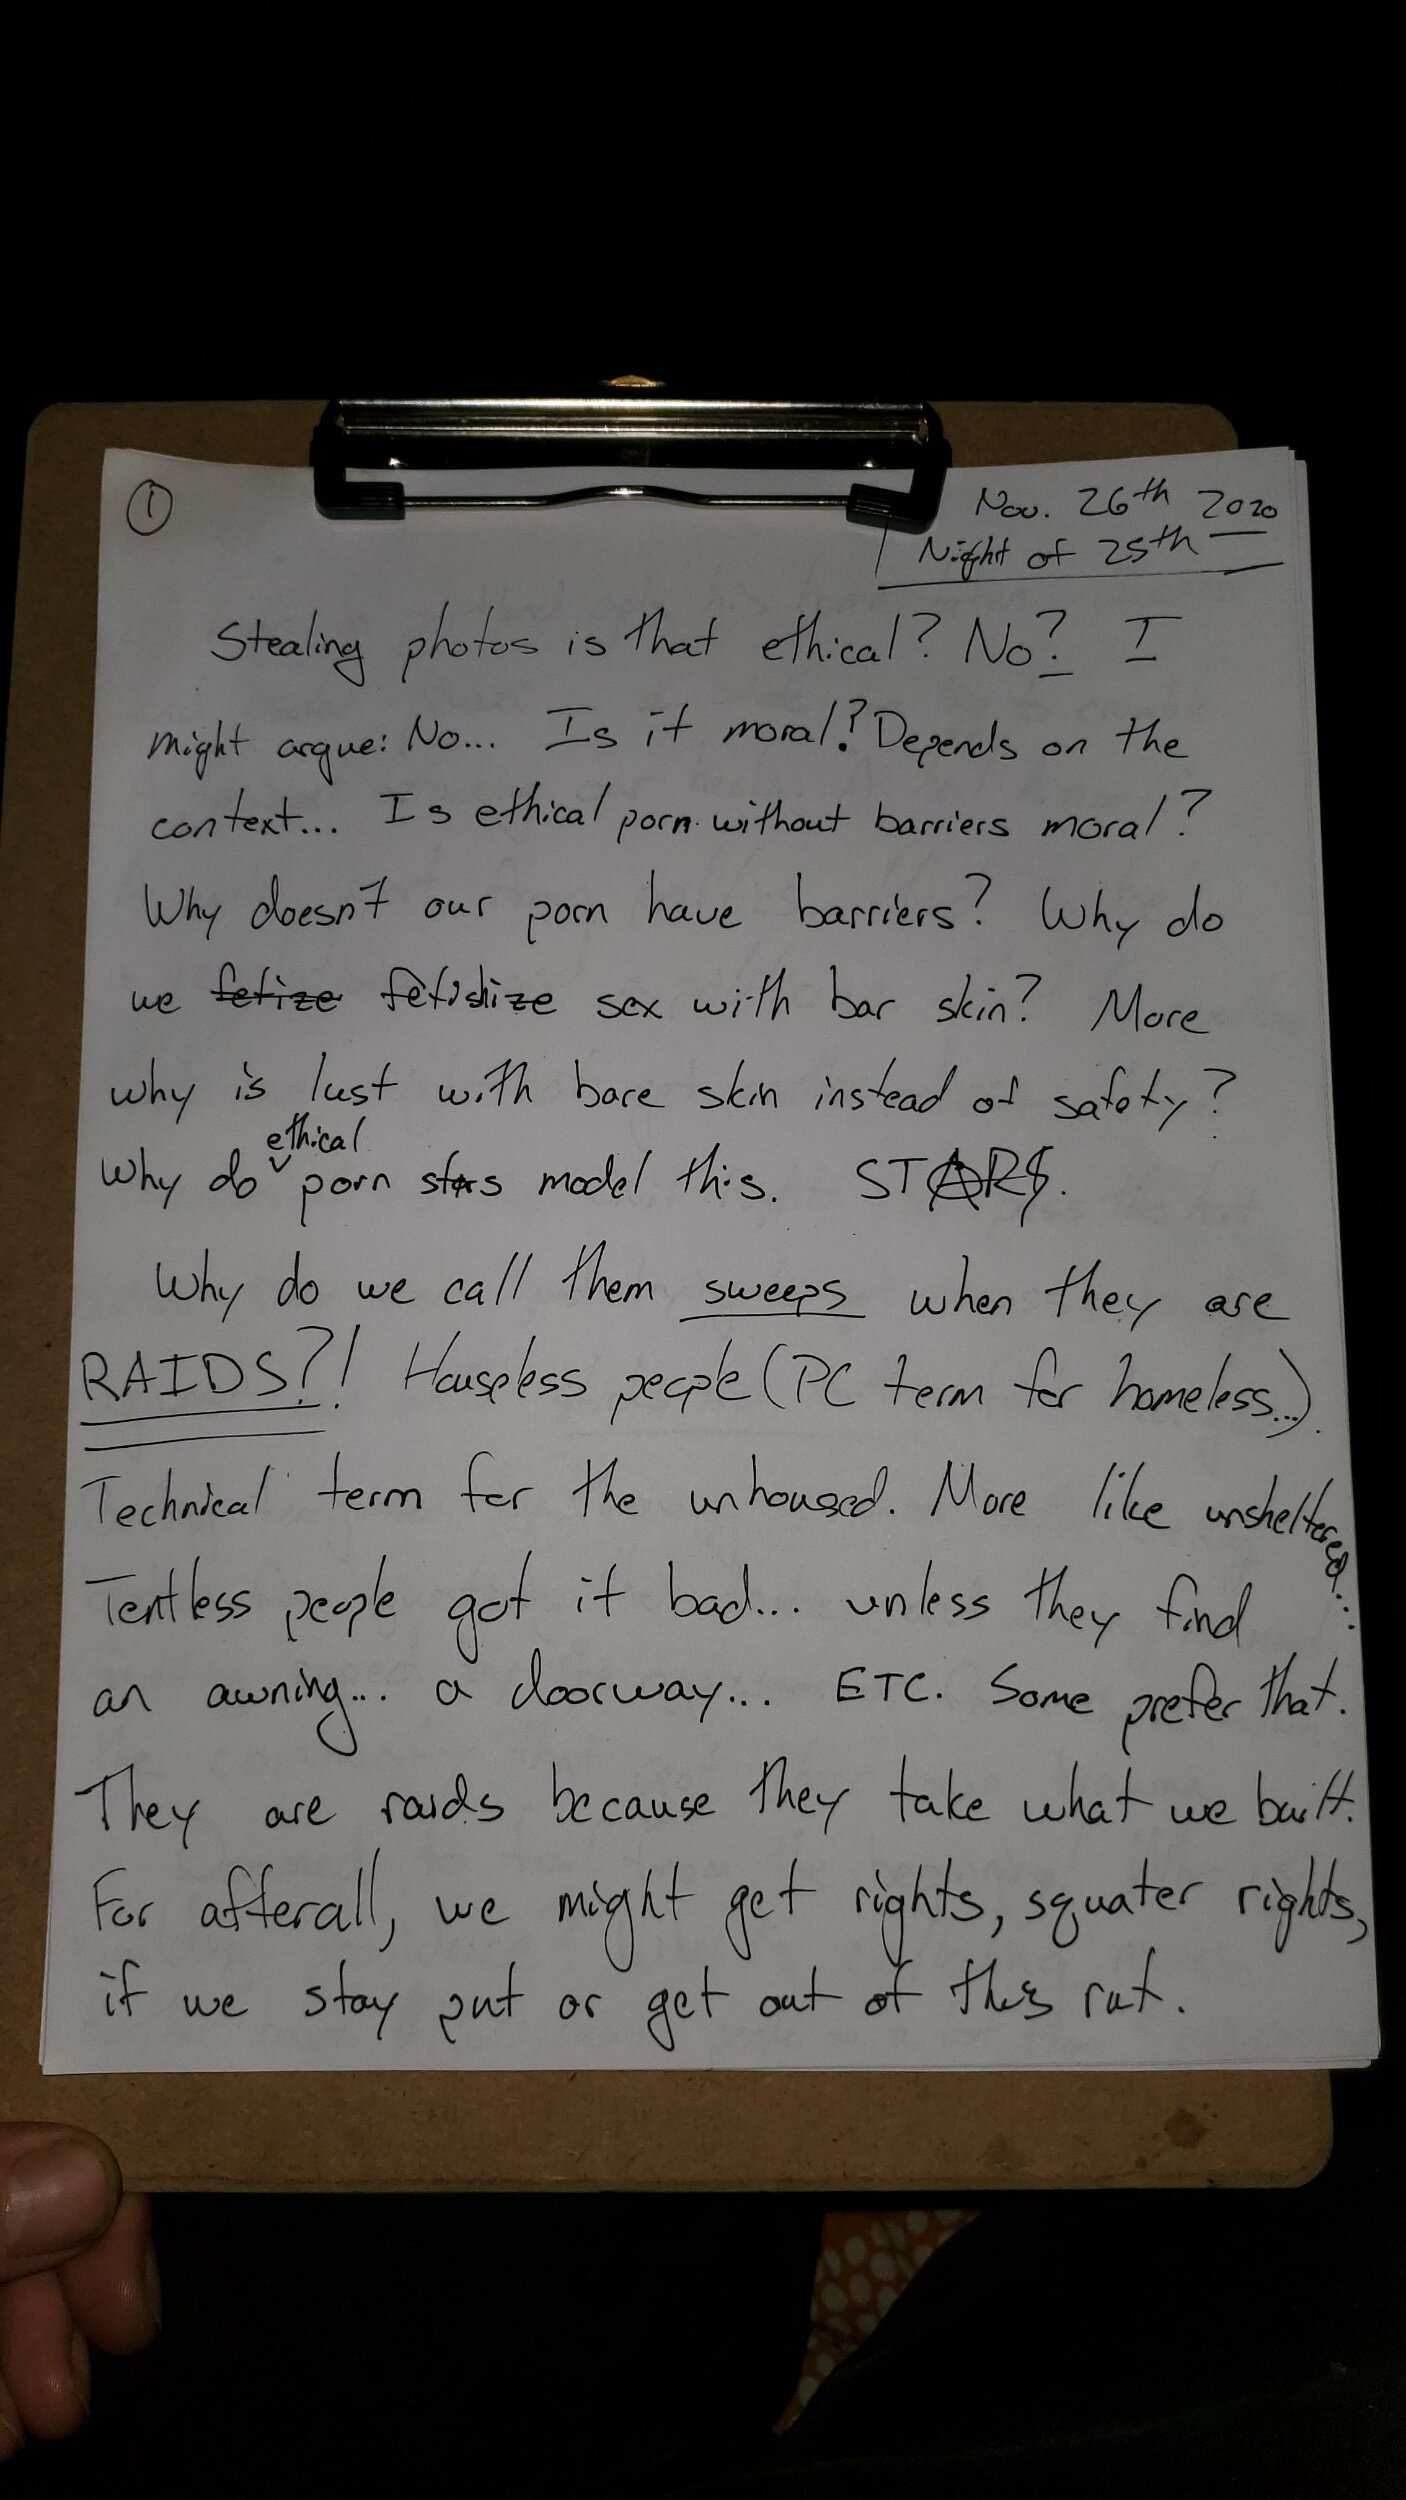 ①
Nov. 26th 2020
Night of 25th
Stealing photos is that ethical? No? I
might argue: No... Is it moral? Depends on the
context... Is ethical porn without barriers moral?
Why doesn't our porn have barriers? Why do
we fetize fetishize sex with bar skin? More
why is lust with bare skin instead of safety?
Why do ethical porn stars model this. STARS.
Why do we call them sweeps when they are
RAIDS?! Houseless people (PC term for homeless...).
Technical term for the unhoused. More like unsheltered...
Tentless people got it bad... unless they find
an awning... a doorway... ETC. Some prefer that.
They are raids because they take what we built.
For afterall, we might get rights, squater rights,
if we stay put or get out of this rut.